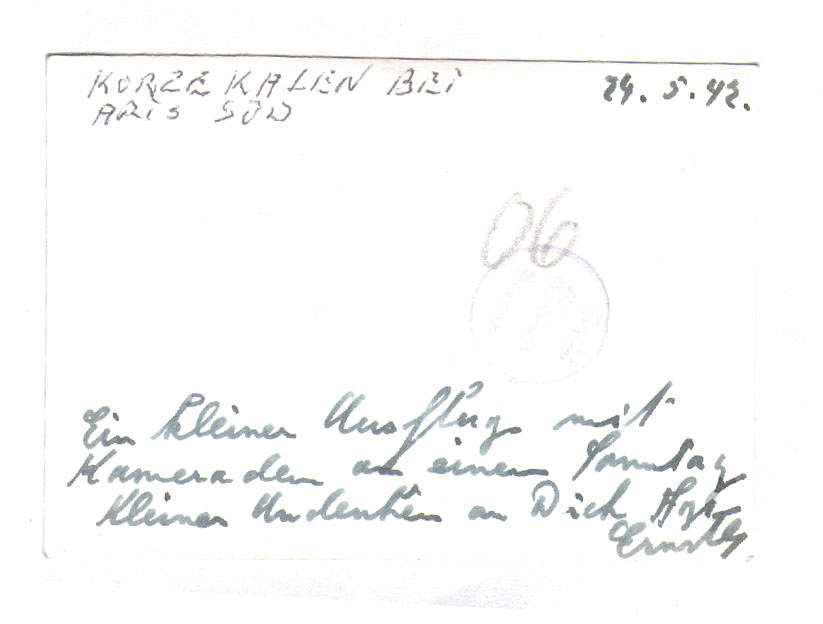 KORZEKALEN BEI 24. 5. 42.
ARIS SÜD
06
Ein kleiner Ausflug mit
Kameraden an einem Sonntag
kleines Andenken an Dich
Ernst